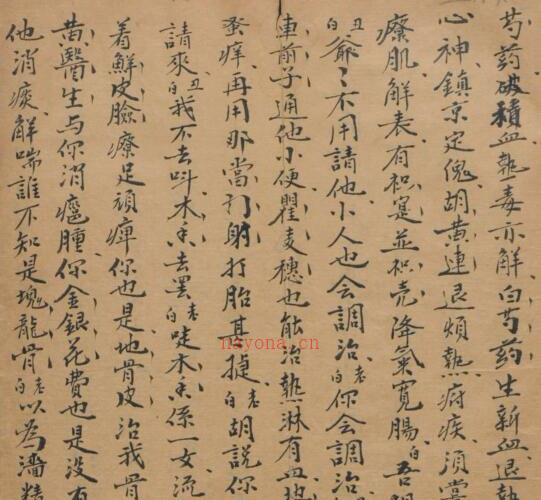 芍药破積血熱毒亦解白芍药生新血退熱
心神鎮京定傀胡黄連退煩熱疳疾須當
療肌解表有枳寔並枳壳降氣寬腸白吾
丑白爺〻不用請他小人也会調治老白你会調治
車前子通他小便瞿麦穗也能治熱淋有血地
蚤痒再用那當门射打胎甚捷老白胡說你
請來丑白我不去呌木香去罢老白哫木香係一女流
着鮮皮臉療足頑痺你也是地骨皮治我骨
黄醫生与你消癰腫你金銀花費也是没有
他消痰解喘誰不知是塊龍骨老白以為濇精
nayona.cn